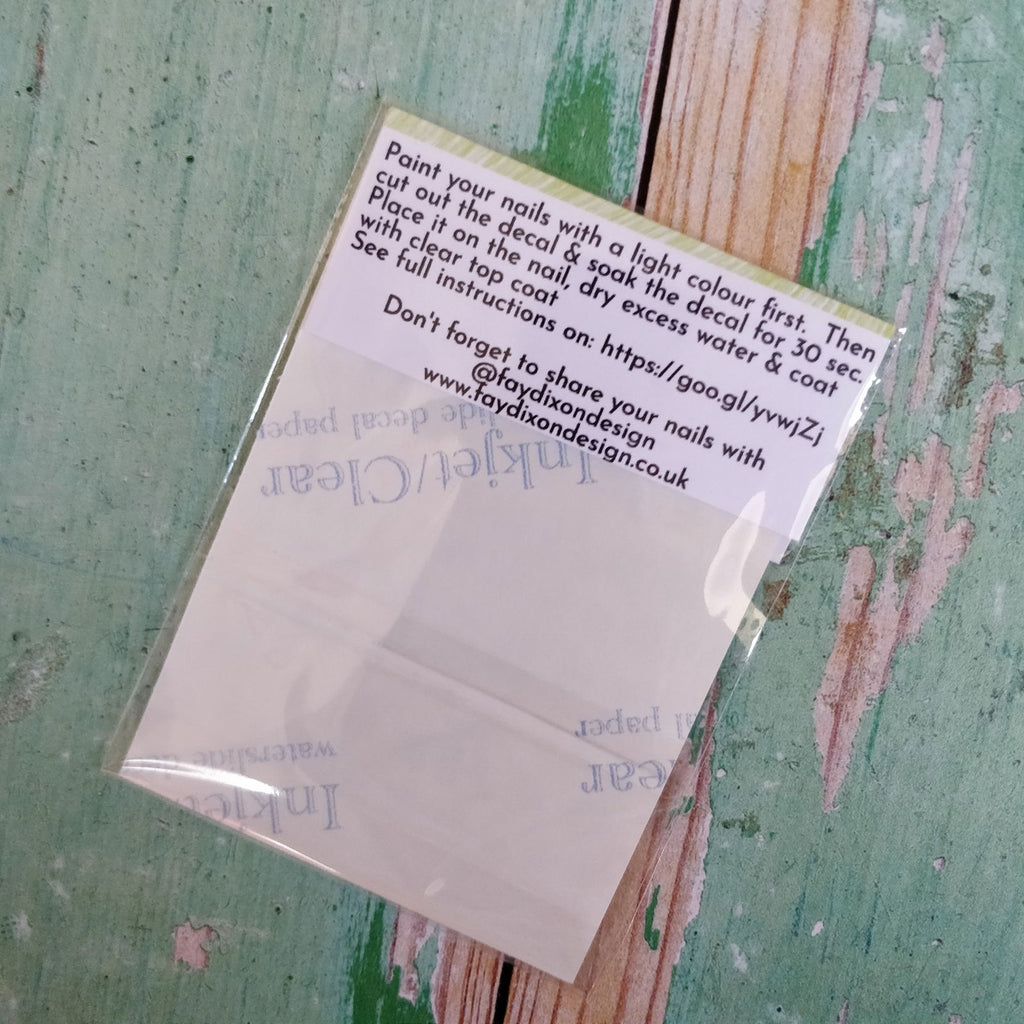 Paint your nails with a light colour first. Then
cut out the decal & soak the decal for 30 sec.
Place it on the nail, dry excess water & coat
with clear top coat
See full instructions on: https://goo.gl/yvwjZj
Don't forget to share your nails with
@faydixondesign
www.faydixondesign.co.uk
Inkjet/Clear
slide decal paper
Clear
al paper
Inkjet
waterslide d